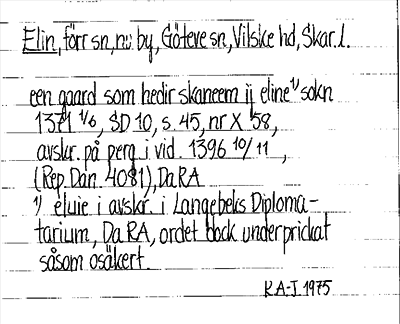 Elin, förr sn, nu by, Göteve sn, Vilske hd, Skar. l.
een gaard som hedir skaneem ij eline¹⁾ sokn
1371 1/6, SD 10, s. 45, nr X 58,
avskr. på perg i vid. 1396 10/11,
(Rep. Dan. 4081), DaRA
¹⁾ eluie i avskr. i Langebeks Diploma-
tarium, DaRA, ordet dock underprickat
såsom osäkert.
KA-J. 1975